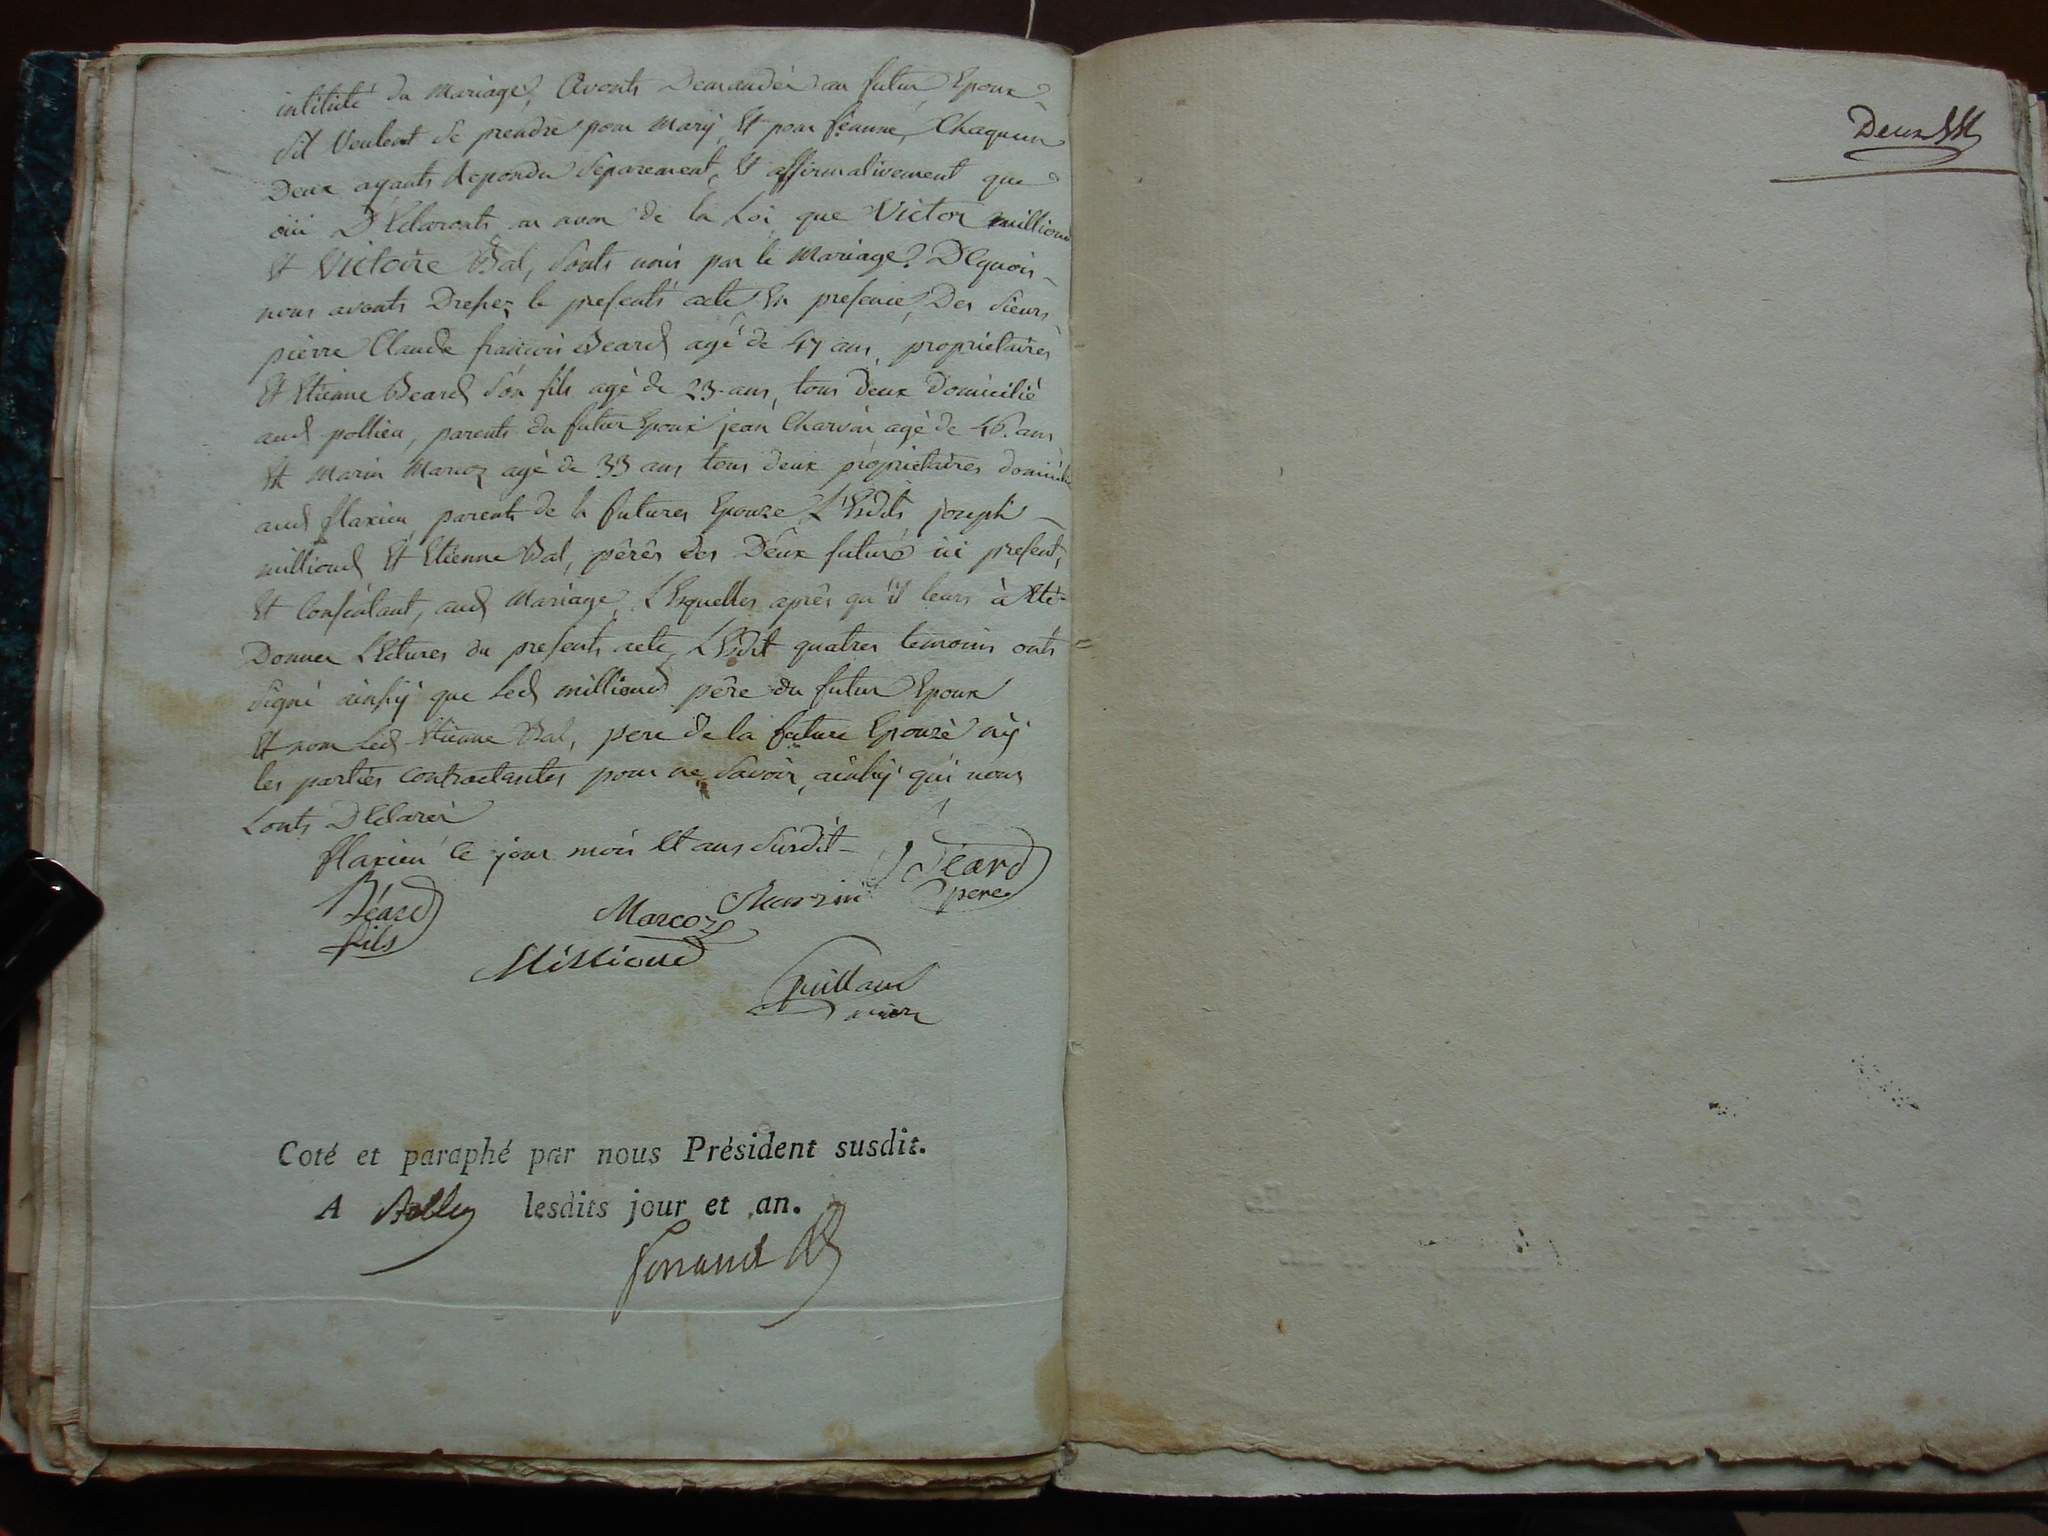 intitulé du Mariage, Avonts Demandéz au futur Epoux
Sil Veulent Se prendre pour Mary Et pour feaune, Chaqueun
Deux ayants Repondu Separement, Et affirmativement que
oüi DEclaronts au nom de la Loi que Victor millioud
Et Victoire Bal, Sonts unis par le Mariage. DEquois
nous avonts Dressez le presents acte En presence, Des Sieurs
pierre Claude francois Beard agé de 47 ans, proprietaires
Et Etienne Beard Son fils agé de 23 ans, tous deux Domicilié
aud pollieu, parents du futur Epoux jean Charvin agé de 46 ans
Et Marin Marcoz agé de 33 ans tous deux proprietaires domicilié
aud flaxieu parents de la futures Epouze, LEsdits joseph
millioud Et Etienne Bal, péres des Deux futurs ici present,
Et Consentant, aud Mariage, LEsquelles après qu'il leurs à Eté
Donner LEctures du presents acte, LEsdit quatres temoins onts
Signé ainsy que Led millioud pére du futur Epoux
Et non Led Etienne Bal, pere de la future Epouze ny
les parties Contractantes pour ne Savoir, ainsy qui nous
Lonts DEclarér
flaxieu le jour mois Et ans Susdit
Béard fils
Marcoz
Béard pere
Millioud
Guillaud
maire
Coté et paraphé par nous Président susdit.
A Belley lesdits jour et an.